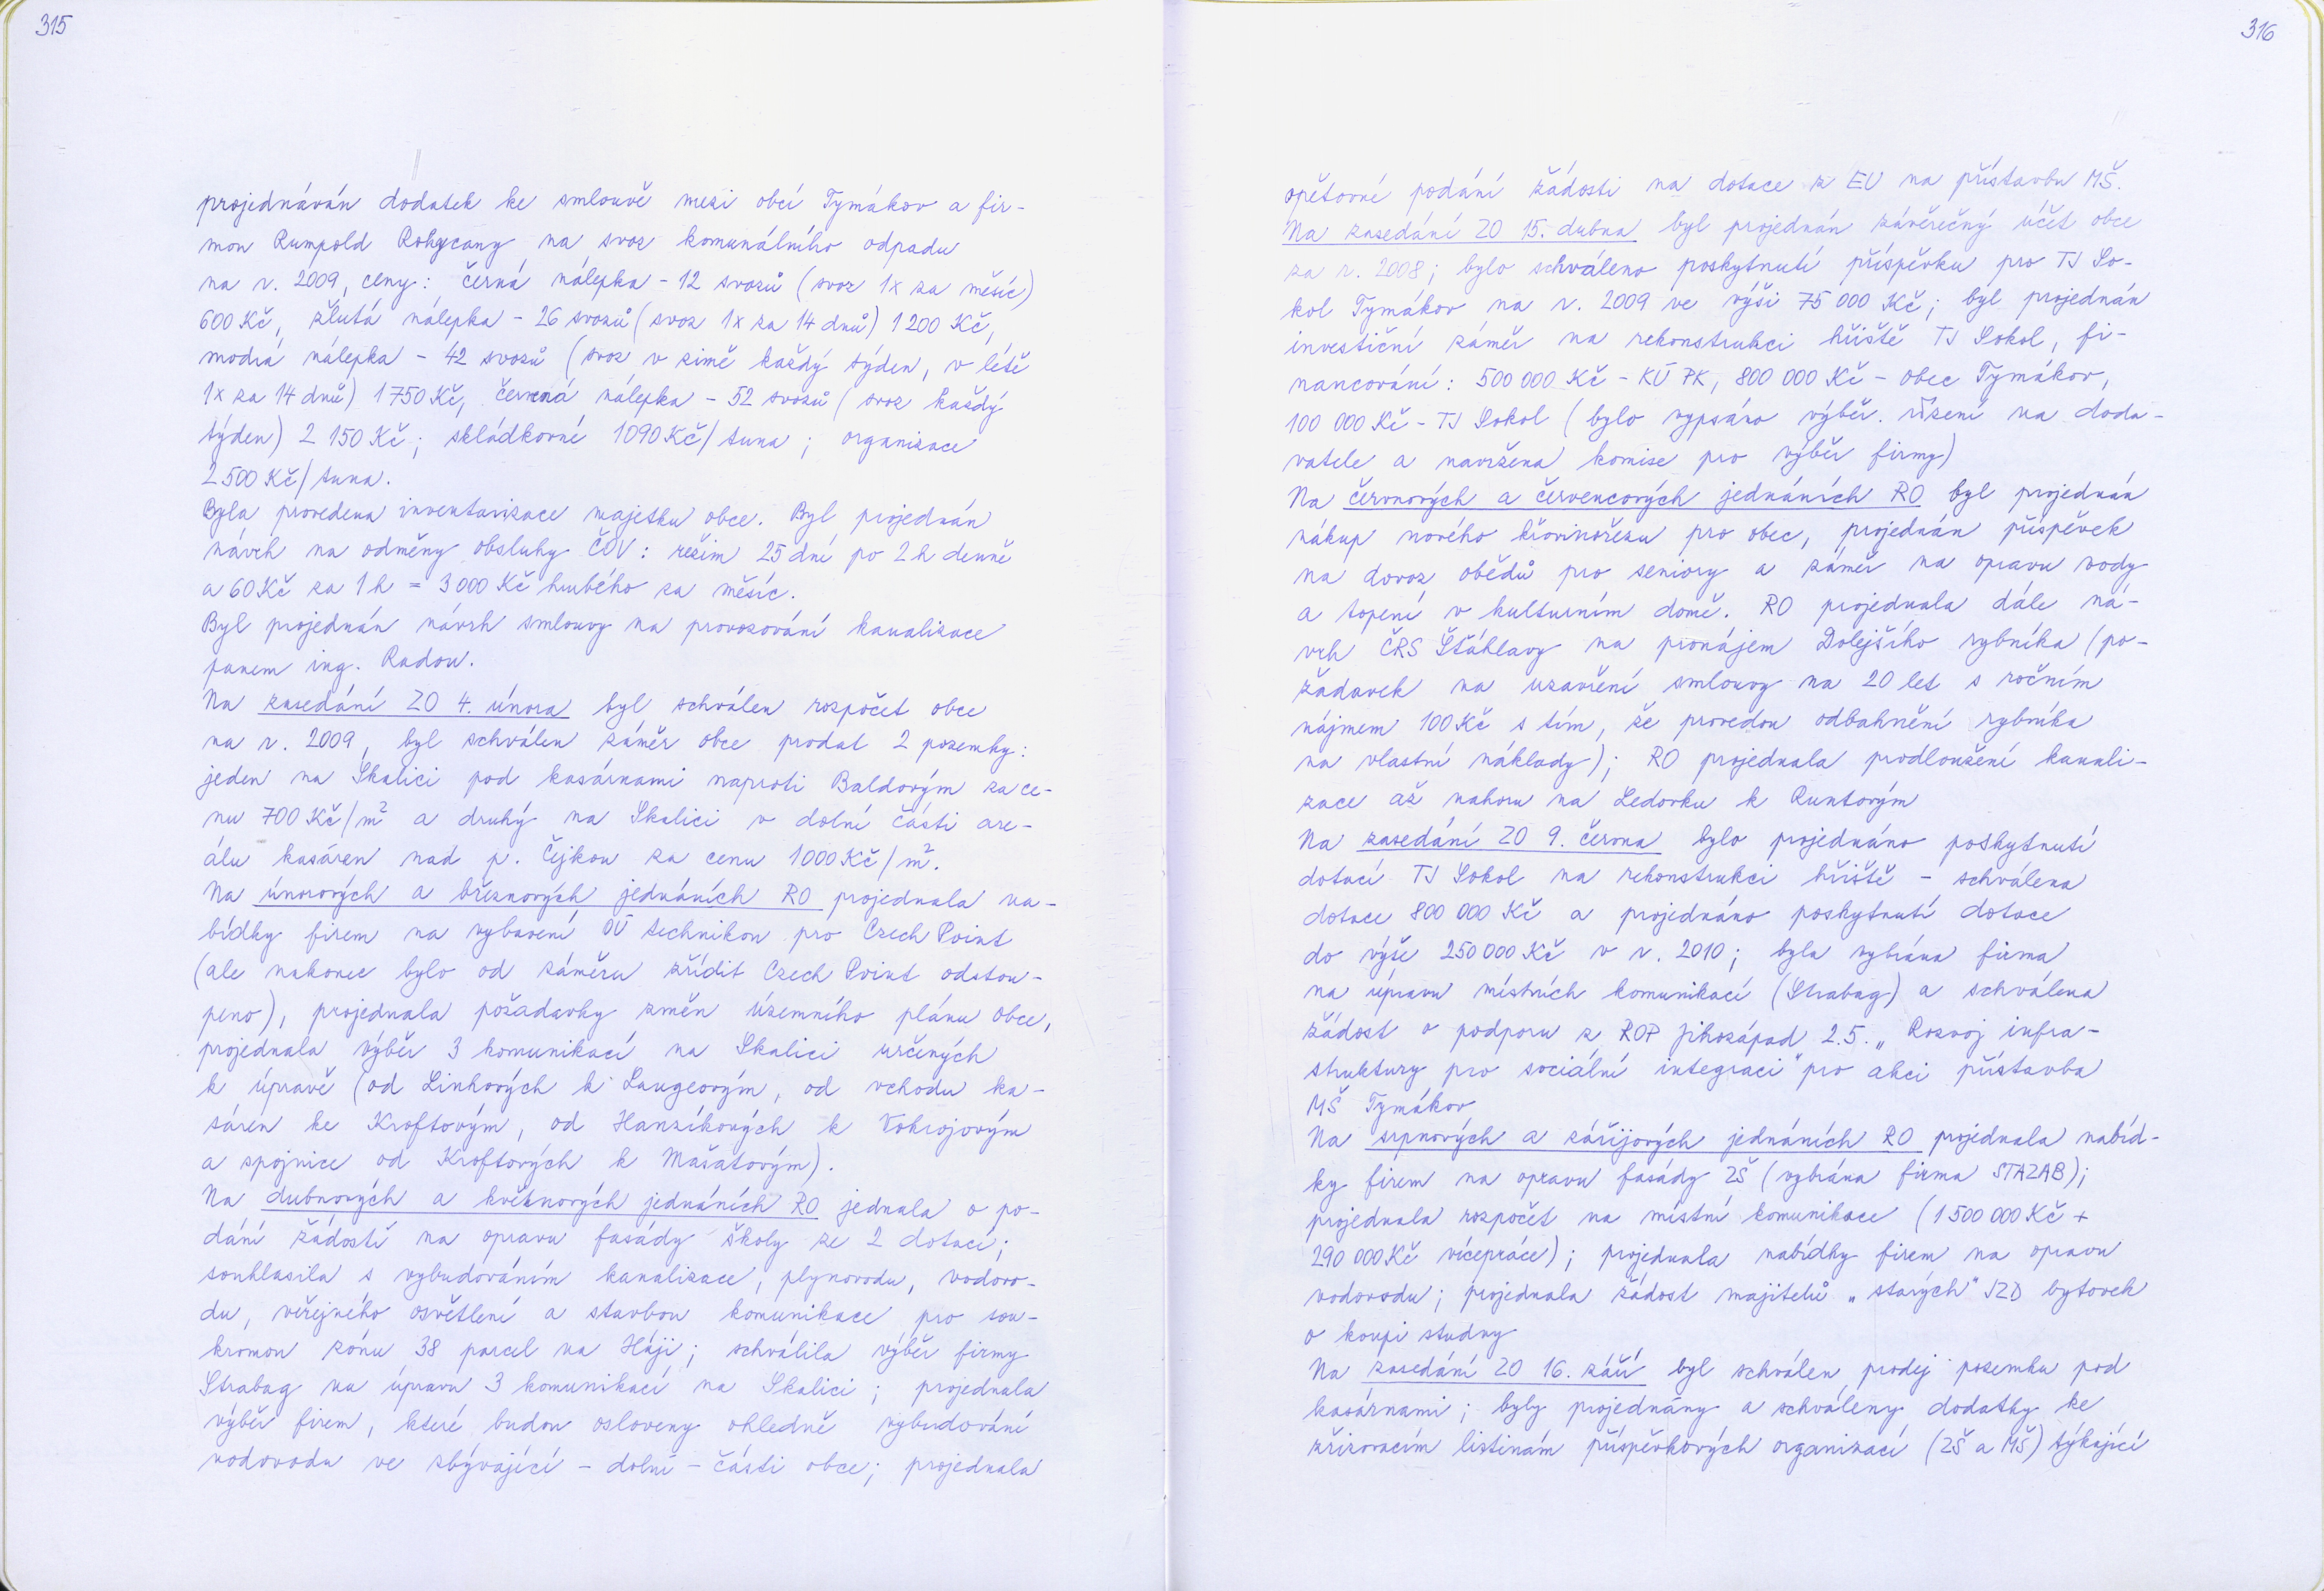 315
projednáván dodatek ke smlouvě mezi obcí Tymákov a fir-
mou Rumpold Rokycany na svoz komunálního odpadu
na r. 2009, ceny: černá nálepka - 12 svozů (svoz 1x za měsíc)
600 Kč, žlutá nálepka - 26 svozů (svoz 1x za 14 dnů) 1 200 Kč,
modrá nálepka - 42 svozů (svoz v zimě každý týden, v létě
1x za 14 dnů) 1 750 Kč, červená nálepka - 52 svozů (svoz každý
týden) 2 150 Kč; skládkovné 1090 Kč/tuna; organizace
2 500 Kč/tuna.
Byla provedena inventarizace majetku obce. Byl projednán
návrh na odměny obsluhy ČOV: režim 25 dní po 2 h denně
a 60 Kč za 1 h = 3 000 Kč hrubého za měsíc.
Byl projednán návrh smlouvy na provozování kanalizace
panem ing. Radou.
Na zasedání ZO 4. února byl schválen rozpočet obce
na r. 2009, byl schválen záměr obce prodat 2 pozemky:
jeden na Skalici pod kasárnami naproti Baldovým za ce-
nu 700 Kč/m² a druhý na Skalici v dolní části are-
álu kasáren nad p. Čejkou za cenu 1000 Kč/m².
Na únorových a březnových jednáních RO projednala na-
bídky firem na vybavení OÚ technikou pro Czech Point
(ale nakonec bylo od záměru zřídit Czech Point odstou-
peno), projednala požadavky změn územního plánu obce,
projednala výběr 3 komunikací na Skalici určených
k úpravě (od Linhových k Langeovým, od vchodu ka-
sáren ke Kroftovým, od Hanzíkových k Vokrojovým
a spojnice od Kroftových k Mašatovým).
Na dubnových a květnových jednáních RO jednala o po-
dání žádostí na opravu fasády školy ze 2 dotací;
souhlasila s vybudováním kanalizace, plynovodu, vodovo-
du, veřejného osvětlení a stavbou komunikace pro sou-
kromou zónu 38 parcel na Háji; schválila výběr firmy
Strabag na úpravu 3 komunikací na Skalici; projednala
výběr firem, které budou osloveny ohledně vybudování
vodovodu ve zbývající - dolní - části obce; projednala
316
opětovné podání žádosti na dotace z EU na přístavbu MŠ.
Na zasedání ZO 15. dubna byl projednán závěrečný účet obce
za r. 2008; bylo schváleno poskytnutí příspěvku pro TJ So-
kol Tymákov na r. 2009 ve výši 75 000 Kč; byl projednán
investiční záměr na rekonstrukci hřiště TJ Sokol, fi-
nancování: 500 000 Kč - KÚ PK, 800 000 Kč - obec Tymákov,
100 000 Kč - TJ Sokol (bylo vypsáno výběr. řízení na doda-
vatele a navržena komise pro výběr firmy)
Na červnových a červencových jednáních RO byl projednán
nákup nového křovinořezu pro obec, projednán příspěvek
na dovoz obědů pro seniory a záměr na opravu vody
a topení v kulturním domě. RO projednala dále ná-
vrh ČRS Šťáhlavy na pronájem Dolejšího rybníka (po-
žadavek na uzavření smlouvy na 20 let s ročním
nájmem 100 Kč s tím, že provedou odbahnění rybníka
na vlastní náklady); RO projednala prodloužení kanali-
zace až nahoru na Ledovku k Runtovým
Na zasedání ZO 9. června bylo projednáno poskytnutí
dotací TJ Sokol na rekonstrukci hřiště - schválena
dotace 800 000 Kč a projednáno poskytnutí dotace
do výše 250 000 Kč v r. 2010; byla vybrána firma
na úpravu místních komunikací (Strabag) a schválena
žádost o podporu z ROP Jihozápad 2.5. „Rozvoj infra-
struktury pro sociální integraci" pro akci přístavba
MŠ Tymákov
Na srpnových a zářijových jednáních RO projednala nabíd-
ky firem na opravu fasády ZŠ (vybrána firma STAZAB);
projednala rozpočet na místní komunikace (1 500 000 Kč +
290 000 Kč vícepráce); projednala nabídky firem na opravu
vodovodu; projednala žádost majitelů „starých" JZD bytovek
o koupi studny
Na zasedání ZO 16. září byl schválen prodej pozemku pod
kasárnami; byly projednány a schváleny dodatky ke
zřizovacím listinám příspěvkových organizací (ZŠ a MŠ) týkající